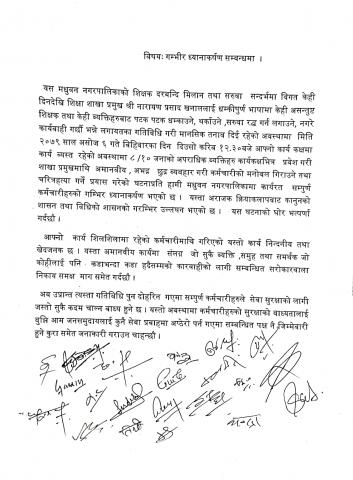 विषयः गम्भीर ध्यानाकर्षण सम्बन्धमा ।
यस मधुवन नगरपालिकाको शिक्षक दरबन्दि मिलान तथा सरुवा सन्दर्भमा विगत केही
दिनदेखि शिक्षा शाखा प्रमुख श्री नारायण प्रसाद खनाललाई धम्कीपुर्ण भाषामा केही असन्तुष्ट
शिक्षक तथा केही व्यक्तिहरुबाट पटक पटक धम्काउने, थर्काउने ,सरुवा रद्ध गर्न लगाउने, नगरे
कार्यवाही गर्छौ भन्ने लगायतका गतिविधि गरी मानसिक तनाव दिई रहेको अवस्थामा मिति
२०७९ साल असोज ६ गते बिहिबारका दिन दिउसो करिव १२.३०बजे आफ्नो कार्य कक्षमा
कार्य व्यस्त रहेको अवस्थामा ८/१० जनाको अपराधिक व्यक्तिहरु कार्यकक्षभित्र प्रवेश गरी
शाखा प्रमुखमाथि अमानवीय, अभद्र छुद्र व्यवहार गरी कर्मचारीको मनोवल गिराउने तथा
चरित्रहत्या गर्ने प्रयास गरेको घटनाप्रति हामी मधुवन नगरपालिकामा कार्यरत सम्पुर्ण
कर्मचारीहरुको गम्भिर ध्यानाकर्षण भएको छ । यस्ता अराजक क्रियाकलापबाट कानुनको
शासन तथा बिधिको शासनको गम्भिर उल्लघन भएको छ । यस घटनाको घोर भत्पर्णा
गर्दछौं ।
आफ्नो कार्य शिलशिलामा रहेको कर्मचारीमाथि गरिएको यस्तो कार्य निन्दनीय तथा
खेदजनक छ । यस्ता अमानवीय कार्यमा संलग्न जो सुकै व्यक्ति ,समुह तथा समर्थक जो
कोहीलाई पनि कडाभन्दा कडा हदैसम्मको कारवाहीको लागी सम्बन्धित सरोकारवाला
निकाय समक्ष माग समेत गर्दछौं ।
अब उप्रान्त त्यस्ता गतिविधि पुन दोहरिन गएमा सम्पुर्ण कर्मचारीहरुले सेवा सुरक्षाको लागी
जस्तो सुकै कदम चाल्न बाध्य हुने छ । यस्तो अवस्थामा कर्मचारीहरुको सुरक्षाको बाध्यतालाई
वुझि आम जनसमुदायलाई कुनै सेवा प्रवाहमा अप्ठेरो पर्न गएमा सम्बन्धित पक्ष नै,जिम्मेवारी
हुने कुरा समेत जनाकारी गराउन चाहन्छौ ।